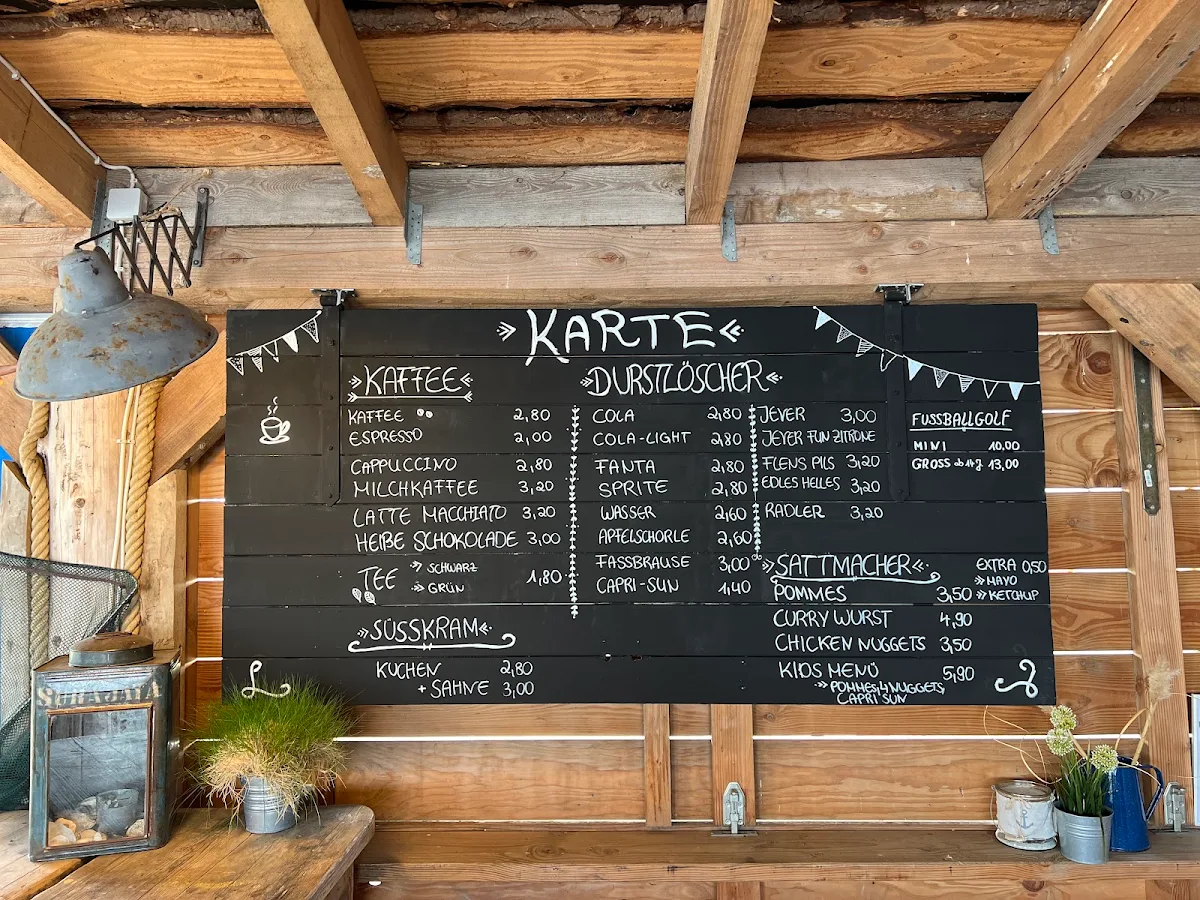 KARTE
KAFFEE
KAFFEE 2,80
ESPRESSO 2,00
CAPPUCCINO 2,80
MILCHKAFFEE 3,20
LATTE MACCHIATO 3,20
HEIßE SCHOKOLADE 3,00
TEE » SCHWARZ
» GRÜN 1,80
SÜSSKRAM
KUCHEN 2,80
+ SAHNE 3,00
DURSTLÖSCHER
COLA 2,80
COLA-LIGHT 2,80
FANTA 2,80
SPRITE 2,80
WASSER 2,60
APFELSCHORLE 2,60
FASSBRAUSE 3,00
CAPRI-SUN 1,40
JEVER 3,00
JEVER FUN ZITRONE
FLENS PILS 3,20
EDLES HELLES 3,20
RADLER 3,20
SATTMACHER
POMMES 3,50
CURRY WURST 4,90
CHICKEN NUGGETS 3,50
KIDS MENÜ 5,90
» POMMES, 4 NUGGETS,
CAPRI SUN
EXTRA 0,50
» MAYO
» KETCHUP
FUSSBALLGOLF
MINI 10,00
GROSS ab 14J. 13,00